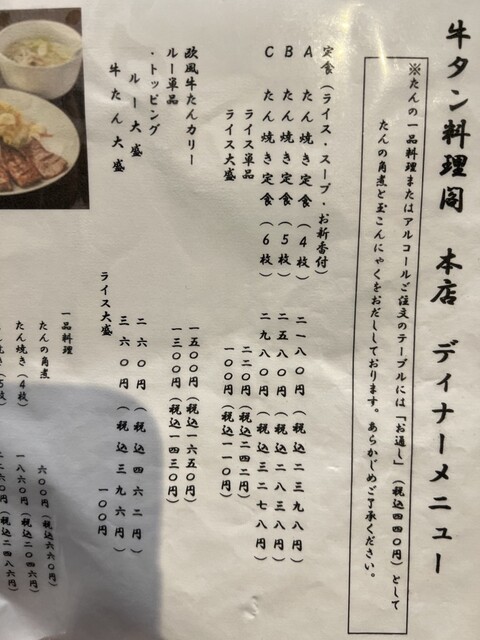 牛タン料理閣 本店 ディナーメニュー
※たんの一品料理またはアルコールご注文のテーブルには「お通し」(税込四四〇円)として
たんの角煮と玉こんにゃくをおだししております。あらかじめご了承ください。
定食(ライス・スープ・お新香付)
A たん焼き定食(4枚) 二一八〇円(税込二三九八円)
B たん焼き定食(5枚) 二五八〇円(税込二八三八円)
C たん焼き定食(6枚) 二九八〇円(税込三二七八円)
ライス単品 二二〇円(税込二四二円)
ライス大盛 一〇〇円(税込一一〇円)
欧風牛たんカリー 一五〇〇円(税込一六五〇円)
ルー単品 一三〇〇円(税込一四三〇円)
・トッピング
ルー大盛 二六〇円(税込四六二円)
牛たん大盛 三六〇円(税込三九六円)
ライス大盛 一〇〇円
一品料理
たんの角煮 六〇〇円(税込六六〇円)
たん焼き(4枚) 一八六〇円(税込二〇四六円)
たん焼き(5枚) 二二六〇円(税込二四八六円)